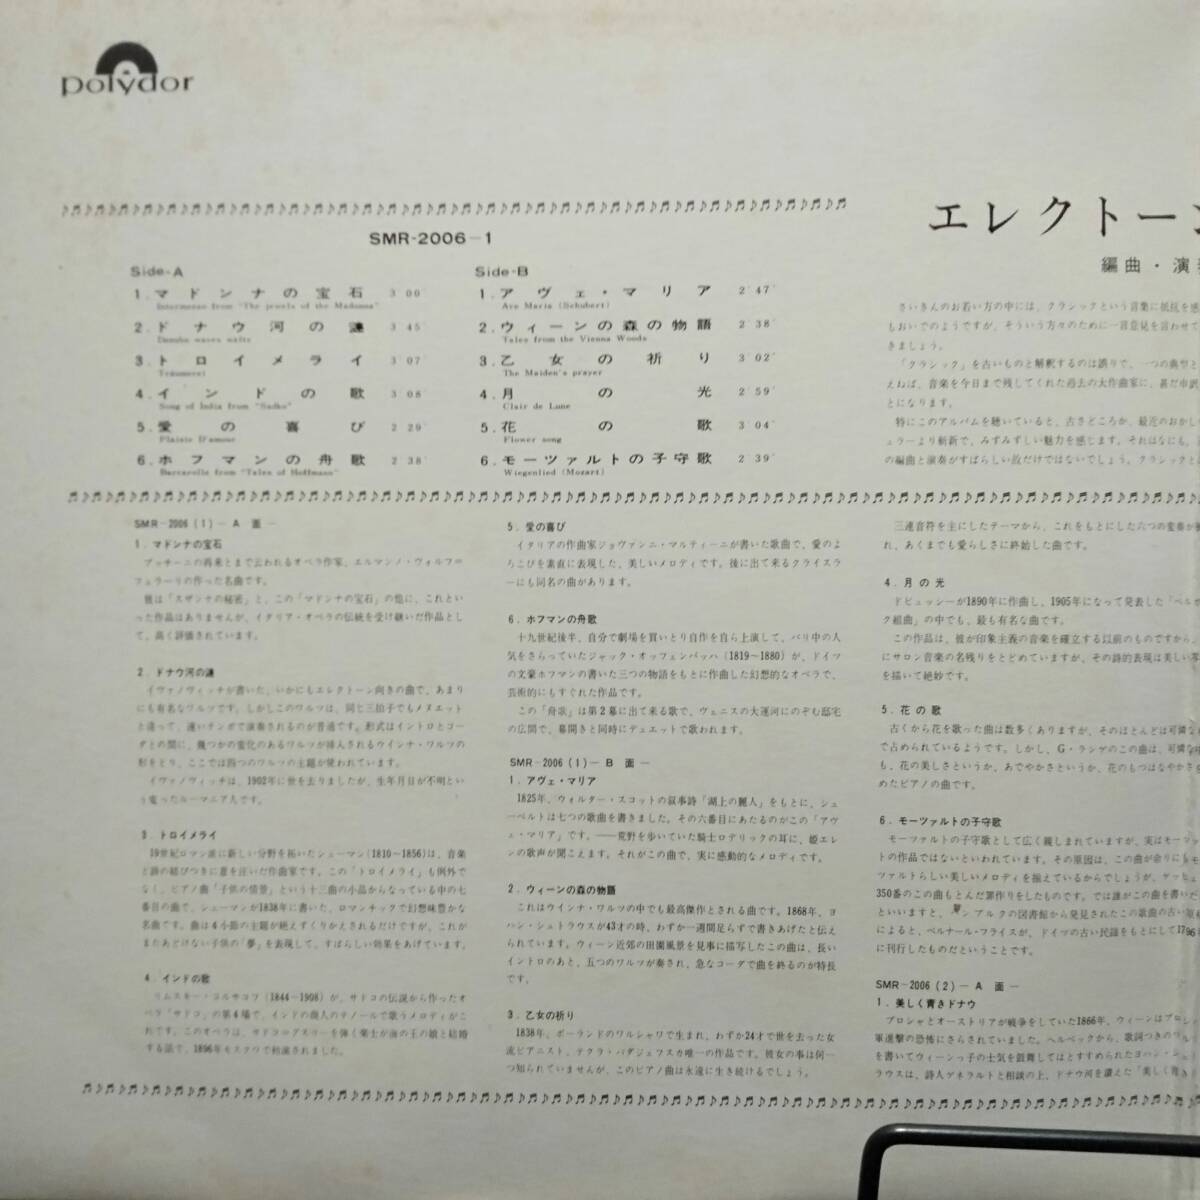 polydor
SMR-2006-1
Side-A
1.マドンナの宝石 3′00″
Intermezzo from "The jewels of the Madonna"
2.ドナウ河の漣 3′45″
3.トロイメライ 3′07″
4.インドの歌 3′08″
Song of India from "Sadko"
5.愛の喜び 2′29″
Plaisir D'amour
6.ホフマンの舟歌 2′38″
Barcarolle from "Tales of Hoffmann"
Side-B
1.アヴェ・マリア 2′47″
Ave Maria (Schubert)
2.ウィーンの森の物語 2′38″
Tales from the Vienna Woods
3.乙女の祈り 3′02″
The Maiden's prayer
4.月の光 2′59″
Clair de Lune
5.花の歌 3′04″
Flower song
6.モーツァルトの子守歌 2′39″
Wiegenlied (Mozart)
エレクトーン
編曲・演奏
さいきんのお若い方の中には、クラシックという音楽に抵抗を感
もおいでのようですが、そういう方々のために一言意見を言わせて
きましょう。
「クラシック」を古いものと解釈するのは誤りで、一つの典型と
えねば、音楽を今日まで残してくれた過去の大作曲家に、甚だ申訳
とになります。
特にこのアルバムを聴いていると、古さどころか、最近のおかし
ェラーより斬新で、みずみずしい魅力を感じます。それはなにも、
の編曲と演奏がすばらしい故だけではないでしょう。クラシックと
SMR-2006 (1) — A 面 —
1. マドンナの宝石
プッチーニの再来とまで云われるオペラ作家、エルマンノ・ヴォルフ=
フェラーリの作った名曲です。
彼は「スザンナの秘密」と、この「マドンナの宝石」の他に、これとい
った作品はありませんが、イタリア・オペラの伝統を受け継いだ作品とし
て、高く評価されています。
2. ドナウ河の漣
イヴァノヴィッチが書いた、いかにもエレクトーン向きの曲で、あまり
にも有名なワルツです。しかしこのワルツは、同じ三拍子でもメヌエット
と違って、速いテンポで演奏されるのが普通です。形式はイントロとコー
ダとの間に、幾つかの変化のあるワルツが挿入されるウインナ・ワルツの
形をとり、ここでは四つのワルツの主題が使われています。
イヴァノヴィッチは、1902年に世を去りましたが、生年月日が不明とい
う変ったルーマニア人です。
3. トロイメライ
19世紀ロマン派に新しい分野を拓いたシューマン(1810〜1856)は、音楽
と詩の結びつきに意を注いだ作曲家です。この「トロイメライ」も例外で
なく、ピアノ曲「子供の情景」という十三曲の小品からなっている中の七
番目の曲で、シューマンが1838年に書いた、ロマンチックで幻想味豊かな
名曲です。曲は4小節の主題が絶えずくりかえされるだけですが、これが
またあどけない子供の「夢」を表現して、すばらしい効果をあげています。
4. インドの歌
リムスキー・コルサコフ(1844〜1908)が、サドコの伝説から作ったオ
ペラ「サドコ」の第4場で、インドの商人のテノールで歌うメロディがこ
れです。このオペラは、サドコのグスリーを弾く楽士が海の王の娘と結婚
する話で、1896年モスクワで初演されました。
5. 愛の喜び
イタリアの作曲家ジョヴァンニ・マルティーニが書いた歌曲で、愛のよ
ろこびを素直に表現した、美しいメロディです。後に出て来るクライスラ
ーにも同名の曲があります。
6. ホフマンの舟歌
十九世紀後半、自分で劇場を買いとり自作を自ら上演して、パリ中の人
気をさらっていたジャック・オッフェンバッハ(1819〜1880)が、ドイツ
の文豪ホフマンの書いた三つの物語をもとに作曲した幻想的なオペラで、
芸術的にもすぐれた作品です。
この「舟歌」は第2幕に出て来る歌で、ヴェニスの大運河にのぞむ邸宅
の広間で、幕開きと同時にデュエットで歌われます。
SMR-2006 (1) — B 面 —
1. アヴェ・マリア
1825年、ウォルター・スコットの叙事詩「湖上の麗人」をもとに、シュ
ーベルトは七つの歌曲を書きました。その六番目にあたるのがこの「アヴ
ェ・マリア」です。——荒野を歩いていた騎士ロデリックの耳に、姫エレ
ンの歌声が聞こえます。それがこの曲で、実に感動的なメロディです。
2. ウィーンの森の物語
これはウインナ・ワルツの中でも最高傑作とされる曲です。1868年、ヨ
ハン・シュトラウスが43才の時、わずか一週間足らずで書きあげたと伝え
られています。ウィーン近郊の田園風景を見事に描写したこの曲は、長い
イントロのあと、五つのワルツが奏され、急なコーダで曲を終るのが特長
です。
3. 乙女の祈り
1838年、ポーランドのワルシャワで生まれ、わずか24才で世を去った女
流ピアニスト、テクラ・バダジェフスカ唯一の作品です。彼女の事は何一
つ知られていませんが、このピアノ曲は永遠に生き続けるでしょう。
三連音符を主にしたテーマから、これをもとにした六つの変奏が
れ、あくまでも愛らしさに終始した曲です。
4. 月の光
ドビュッシーが1890年に作曲し、1905年になって発表した「ベルガ
ク組曲」の中でも、最も有名な曲です。
この作品は、彼が印象主義の音楽を確立する以前のものですから、
にサロン音楽の名残りをとどめていますが、その詩的表現は美しい
を描いて絶妙です。
5. 花の歌
古くから花を歌った曲は数多くありますが、そのほとんどは可憐な
で占められているようです。しかし、G・ランゲのこの曲は、可憐な
も、花の美しさというか、あでやかさというか、花のもつはなやかさを
めたピアノの曲です。
6. モーツァルトの子守歌
モーツァルトの子守歌として広く親しまれていますが、実はモーツァ
トの作品ではないといわれています。その原因は、この曲が余りにもモ
ツァルトらしい美しいメロディを揃えているからでしょうが、ケッヒェ
350番のこの曲もとんだ罪作りをしたものです。では誰がこの曲を書いた
といいますと、ハンブルクの図書館から発見されたこの歌曲の古い
によると、ベルナール・フライスが、ドイツの古い民謡をもとにして1796
に刊行したものだということです。
SMR-2006 (2) — A 面 —
1. 美しく青きドナウ
プロシャとオーストリアが戦争をしていた1866年、ウィーンはプロシ
軍進撃の恐怖にさらされていました。ヘルベックから、歌詞つきのワルツ
を書いてウィーンっ子の士気を鼓舞してはとすすめられたヨハン・シュト
ラウスは、詩人ゲネラルトと相談の上、ドナウ河を讃えた「美しく青きド